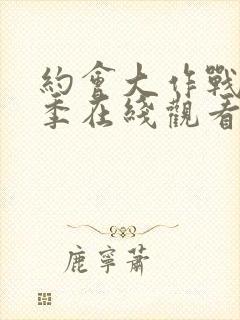 約會大作戰
季在綫觀看
鹿寧蕭